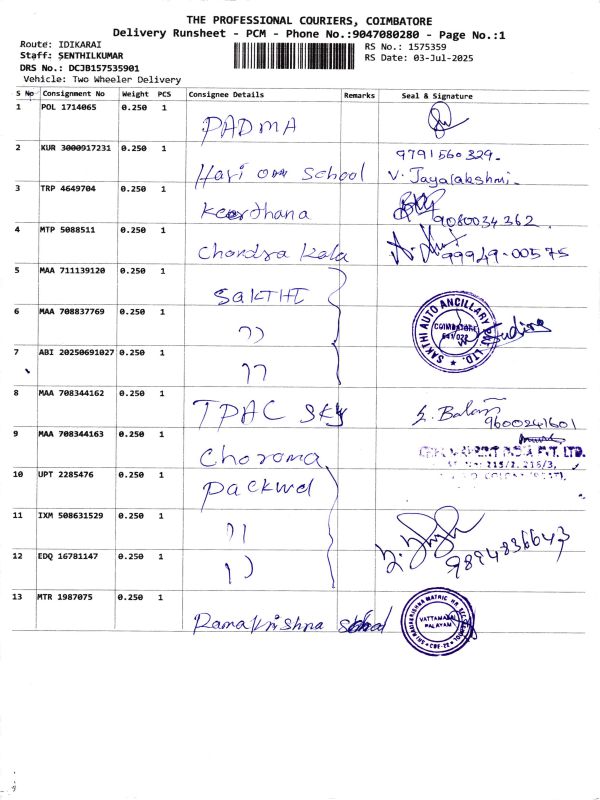 THE PROFESSIONAL COURIERS, COIMBATORE
Delivery Runsheet - PCM - Phone No.:9047080280 - Page No.:1
Route: IDIKARAI
RS No.: 1575359
Staff: SENTHILKUMAR
RS Date: 03-Jul-2025
DRS No.: DCJB157535901
Vehicle: Two Wheeler Delivery
S No Consignment No Weight PCS Consignee Details Remarks Seal & Signature
1 POL 1714065 0.250 1 PADMA
2 KUR 3000917231 0.250 1 Hari om School 9791560329.
V. Jayalakshmi.
3 TRP 4649704 0.250 1 Keerdhana 9080034362.
4 MTP 5088511 0.250 1 Chandra Kala 99949-00575
5 MAA 711139120 0.250 1 SAKTHI
6 MAA 708837769 0.250 1 ))
SAKTHI AUTO ANCILLARY PVT. LTD.
COIMBATORE
641 022
7 ABI 20250691027 0.250 1 ))
8 MAA 708344162 0.250 1 TPAC SKY S. Balan
9600241601
9 MAA 708344163 0.250 1 Choroma
INDIA PVT. LTD.
215/2, 216/3,
10 UPT 2285476 0.250 1 Packwel
11 IXM 508631529 0.250 1 ))
9894836643
12 EDQ 16781147 0.250 1 ))
13 MTR 1987075 0.250 1 Ramakrishna School
SRI RAMAKRISHNA MATRIC HR SEC SCHOOL
VATTAMALAI
PALAYAM
CBE-22